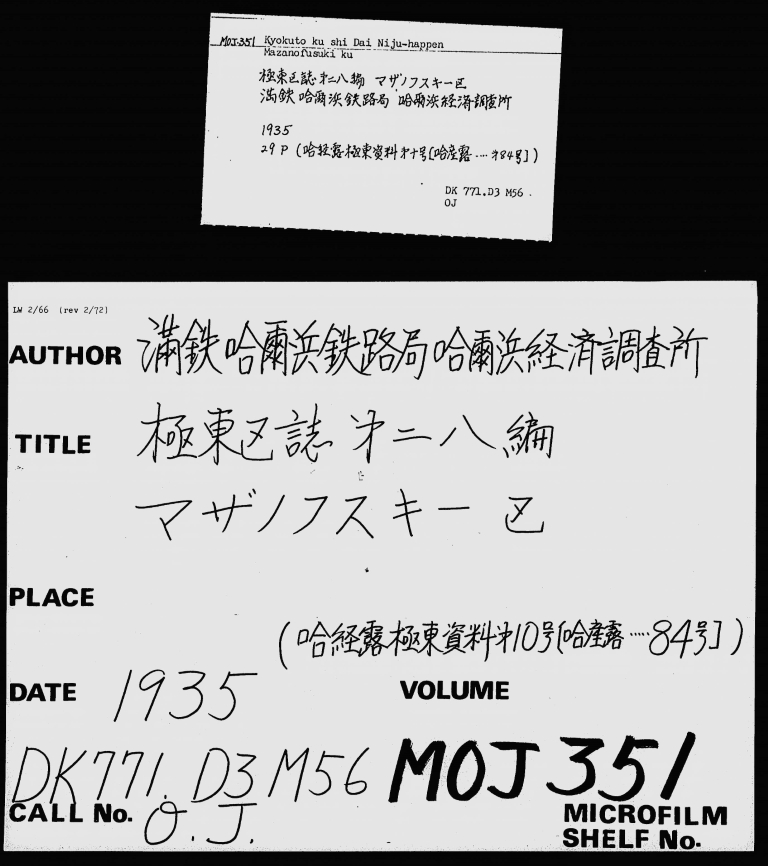 MOJ 351 Kyokuto ku shi Dai Niju-happen
Mazanofusuki ku
極東区誌 第二八編 マザノフスキー区
満鉄 哈爾浜鉄路局 哈爾浜経済調査所
1935
29 P (哈経露極東資料第十号[哈産露....第84号])
DK 771.D3 M56.
OJ
LW 2/66 (rev 2/72)
AUTHOR 満鉄哈爾浜鉄路局哈爾浜経済調査所
TITLE 極東区誌 第二八編
マザノフスキー区
PLACE
(哈経露極東資料第10号[哈産露.....84号])
DATE 1935 VOLUME
DK771.D3 M56 MOJ 351
CALL No. O.J. MICROFILM
SHELF No.